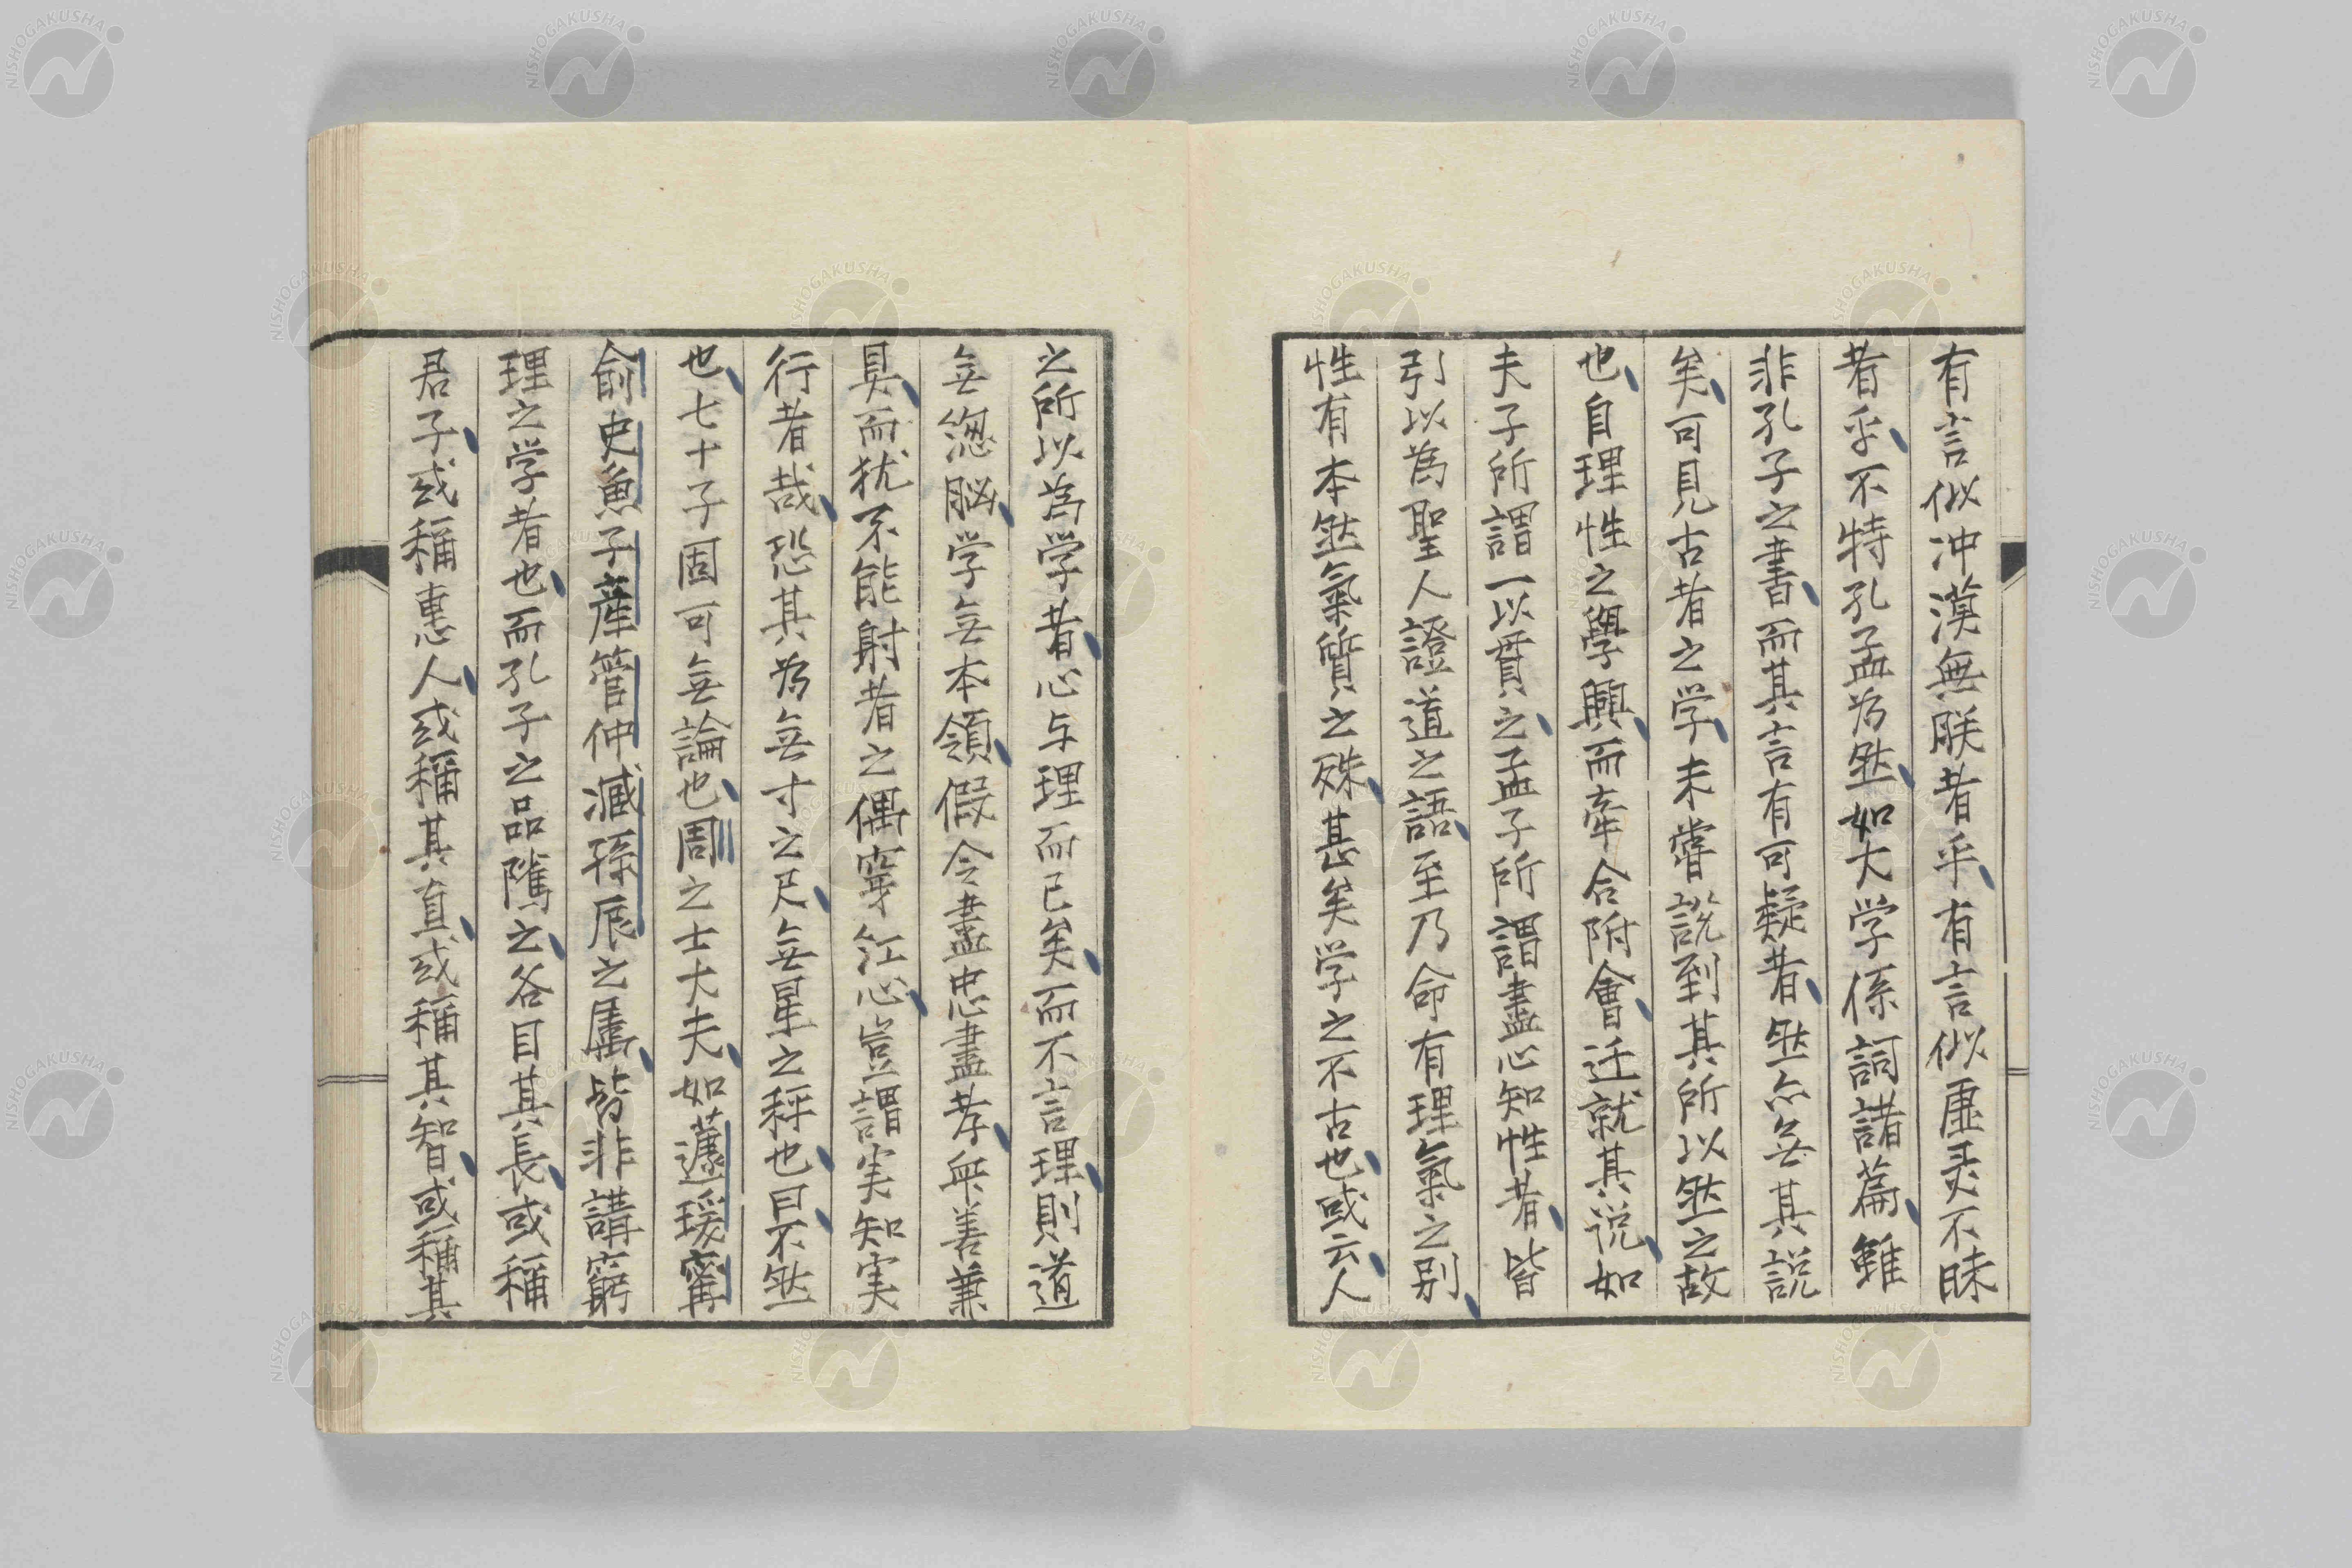 有言似冲漠無朕者乎有言似虚灵不昧
者乎不特孔孟為然如大学係詞諸篇雖
非孔子之書而其言有可疑者然亦無其説
矣可見古者之学未嘗説到其所以然之故
也自理性之學興而牽合附會迁就其説如
夫子所謂一以貫之孟子所謂盡心知性者皆
引以為聖人證道之語至乃命有理氣之别
性有本然氣質之殊甚矣学之不古也或云人
之所以為学者心与理而已矣而不言理則道
無惣脳学無本領假令盡忠盡孝無善兼
具而犹不能射者之偶穿江心豈謂実知実
行者哉恐其為無寸之尺無星之秤也曰不然
也七十子固可無論也周之士大夫如蘧瑗甯
俞史魚子産管仲臧孫辰之属皆非講窮
理之学者也而孔子之品隲之各目其長或稱
君子或稱恵人或稱其直或稱其智或稱其